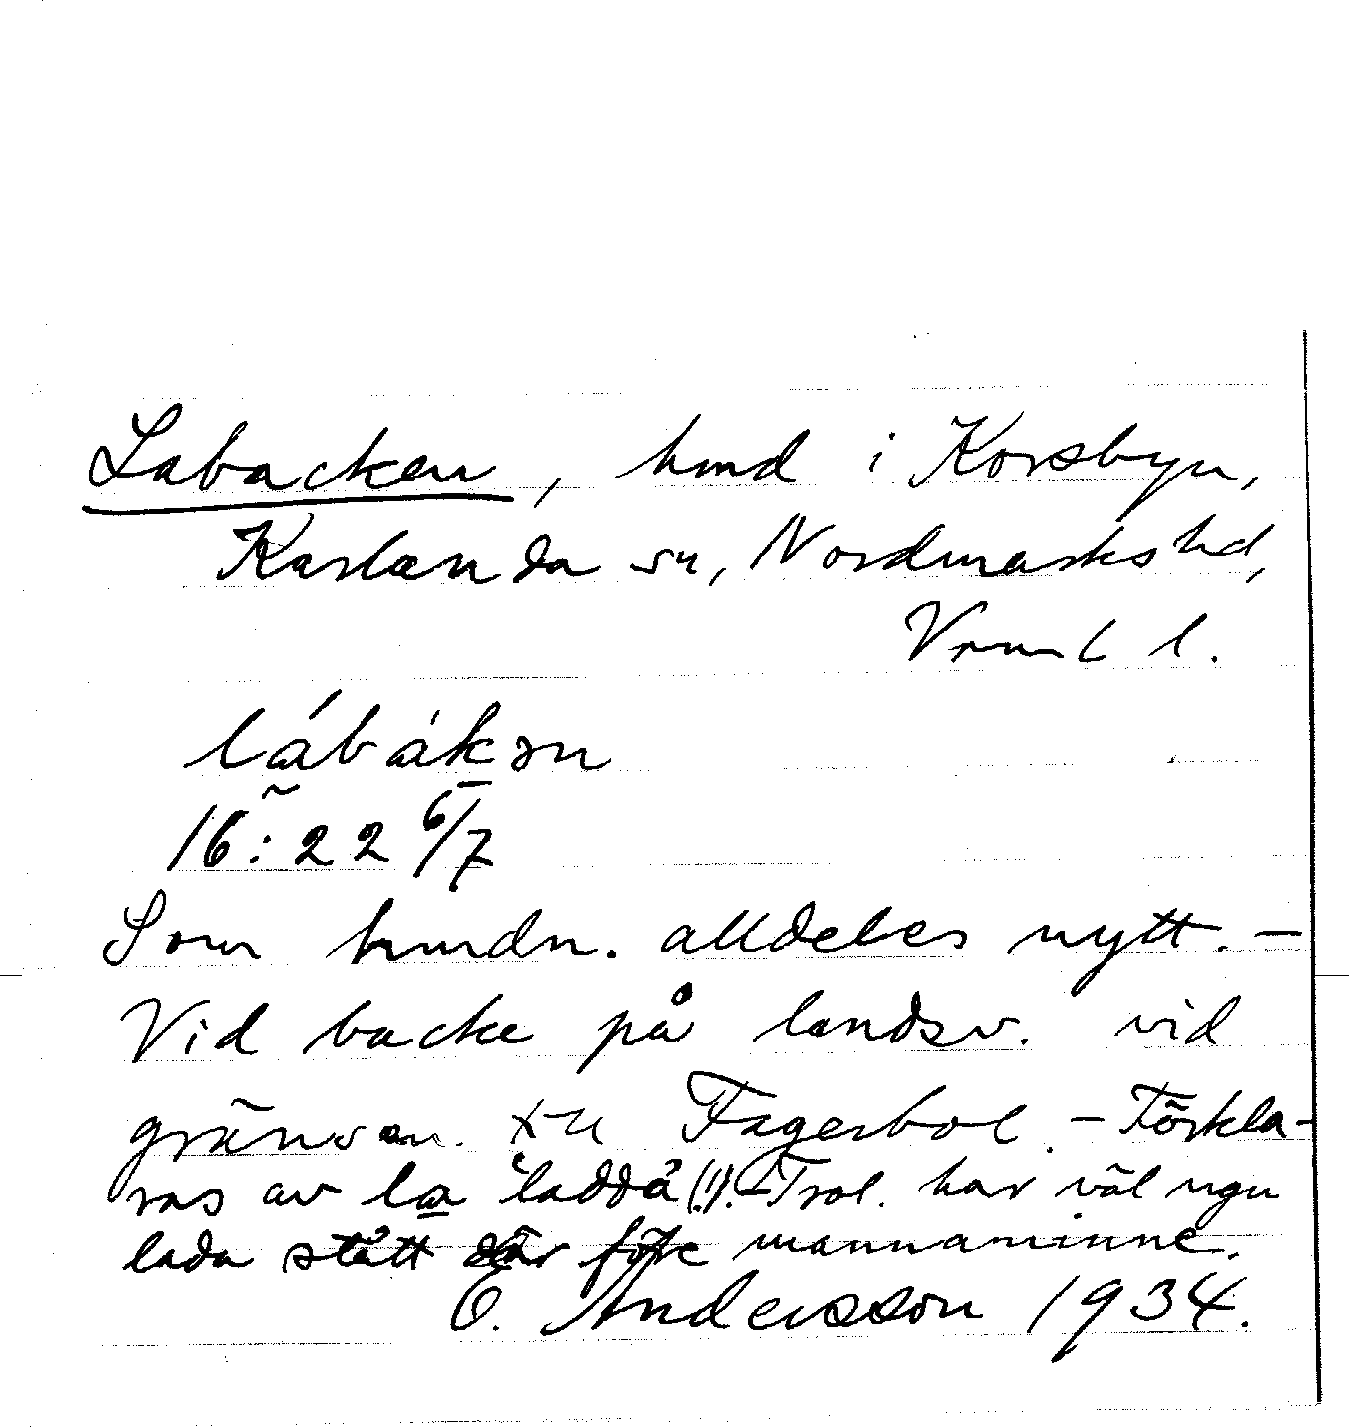 Labacken, hmd i Korsbyn,
Karlanda sn, Nordmarks hd,
Vrml l.
lábákən
16:22 6/7
Som hmdn. alldeles nytt. –
Vid backe på landsv. vid
gränsen t. Fagerbol. – Förkla-
ras av la "ladda" (!). – Trol. har väl ngn
lada stått där före mannaminne.
O. Andersson 1934.